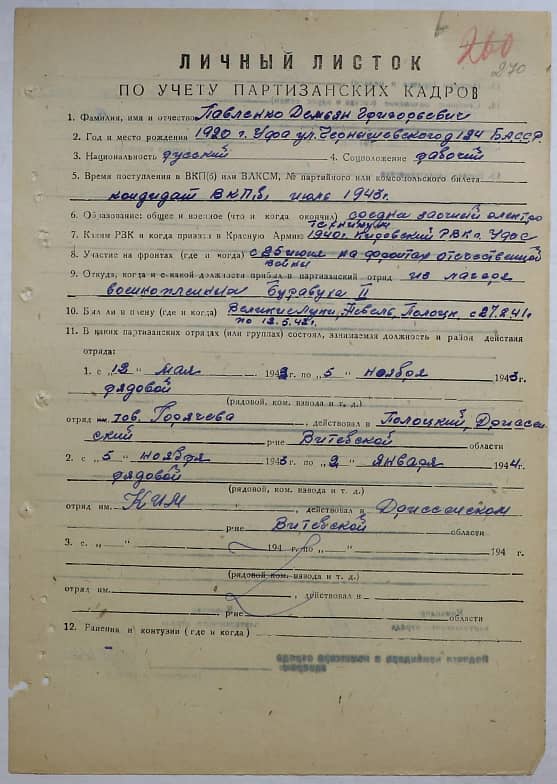 260
270
ЛИЧНЫЙ ЛИСТОК
ПО УЧЕТУ ПАРТИЗАНСКИХ КАДРОВ
1. Фамилия, имя и отчество Павленко Демьян Григорьевич
2. Год и место рождения 1920 г. Уфа ул. Чернышевского д 124 БАССР.
3. Национальность русский 4. Соцположение рабочий
5. Время поступления в ВКП(б) или ВЛКСМ, № партийного или комсомольского билета
кандидат ВКП(б), июль 1943 г.
6. Образование: общее и военное (что и когда окончил) заочный электро
техникум
7. Каким РВК и когда призван в Красную Армию 1940г. Кировский РВК г. Уфа
8. Участие на фронтах (где и когда) с 25 июня на фронтах отечественной
войны
9. Откуда, когда и с какой должности прибыл в партизанский отряд из лагеря
военнопленных Буравуха II
10. Был ли в плену (где и когда) Великие Луки, Невель, Полоцк с 27.8.41г.
по 12.5.42г.
11. В каких партизанских отрядах (или группах) состоял, занимаемая должность и район действия
отряда:
1. с „12" мая 1942 г. по „5" ноября 1943 г.
рядовой
(рядовой, ком. взвода и т. д.)
отряд тов. Горячева, действовал в Полоцкий, Дриссен
ский р-не Витебской области
2. с „5" ноября 1943 г. по „2" января 1944 г.
рядовой
(рядовой, ком. взвода и т. д.)
отряд им. КИМ, действовал в Дриссенском
р-не Витебской области
3. с „ " 194 г. по „ " 194 г.
(рядовой, ком. взвода и т. д.)
отряд им. , действовал в
р-не области
12. Ранения и контузии (где и когда)